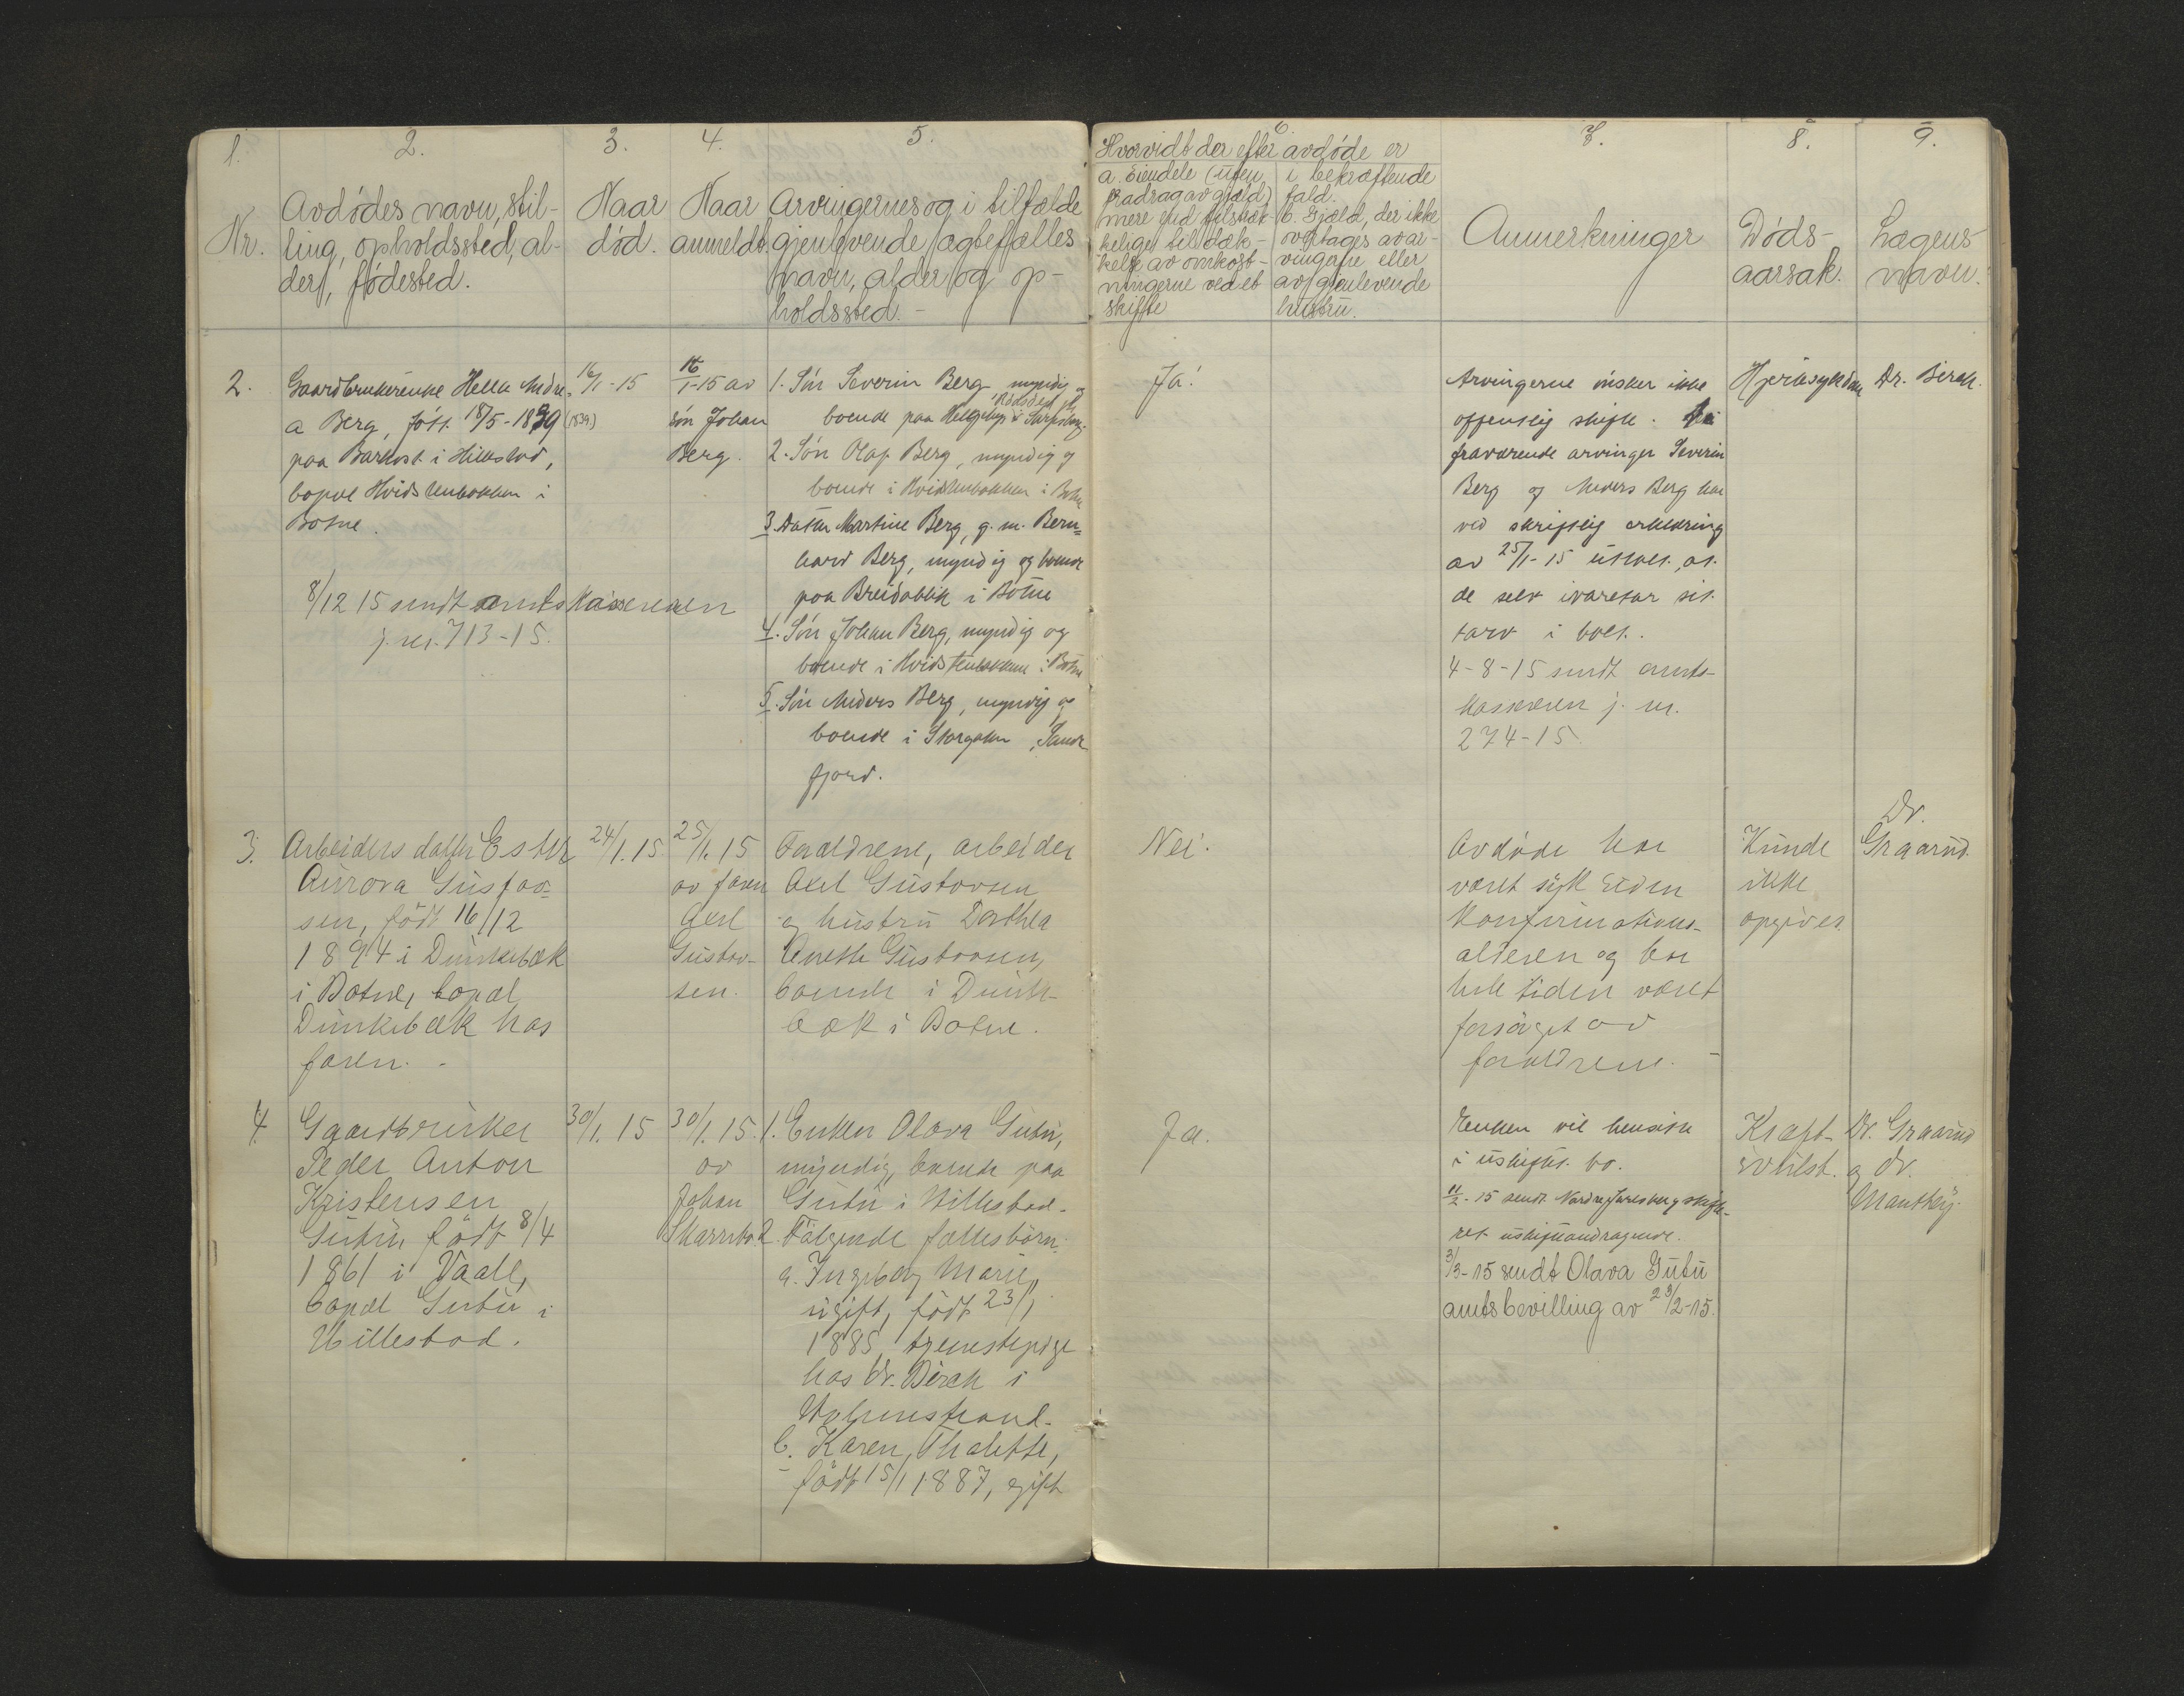 1.
2.
3.
4.
5.
6
7.
8.
9.
Nr.
Avdødes navn, stil-
ling, opholdssted, al-
der, fødested.
Naar
død.
Naar
anmeldt.
Arvingernes og i tilfælde
gjenlevende ægtefælles
navn, alder og op-
holdssted.-
Hvorvidt der efter avdøde er
a. Eiendele (uten
fradrag av gjæld)
mere end tilstræk-
kelige til dæk-
kelse av omkost-
ningerne ved et
skifte
i bekræftende
fald.
b. Gjæld, der ikke
overtages av ar-
vingerne eller
av gjenlevende
hustru.
Anmerkninger
Døds-
aarsak.
Lægens
navn.
2.
Gaardbrukerenke Helle Andre-
a Berg, født 18/5-1839 (1839)
paa Barkost i Hillestad,
bopæl Hvidstenbakken i
Botne.
8/12 15 sendt amtskassereren
j. nr. 713-15.
16/1-15
18/1-15 av
søn Johan
Berg.
1. Søn Severin Berg, myndig og
boende paa Helgeby i Sarpsborg.
2. Søn Olaf Berg, myndig og
boende i Hvidstenbakken i Botne
3. Datter Martine Berg, g. m. Bern-
hard Berg, myndig og boende
paa Breidablik i Botne
4. Søn Johan Berg, myndig og
boende i Hvidstenbakken i Botne
5. Søn Anders Berg, myndig og
boende i Storgaten, Sande-
fjord.
Ja!
Arvingerne ønsker ikke
offentlig skifte. De
fraværende arvinger Severin
Berg og Anders Berg har
ved skriftlig erklæring
av 25/1-15 uttalt, at
de selv ivaretar sit
tarv i boet.
4-8-15 sendt amts-
kassereren j. nr.
274-15.
Hjertesykdom
Dr. Birch.
3.
Arbeiders datter Ester
Aurora Gustav-
sen, født 16/12
1894 i Dunkebæk
i Botne, bopæl
Dunkebæk hos
faren. -
24/1. 15
25/1. 15
av faren
Axel
Gustav-
sen.
Forældrene, arbeider
Axel Gustavsen
og hustru Dorthea
Anette Gustavsen,
boende i Dunke-
bæk i Botne.
Nei.
Avdøde har
været syk siden
konfirmations-
alderen og har
hele tiden været
forsørget av
forældrene. -
Kunde
ikke
opgives.
Dr.
Graarud.
4.
Gaardbruker
Peder Anton
Kristensen
Gutu, født 8/4
1861 i Vaale,
bopæl Gutu i
Hillestad.
30/1. 15
30/1. 15.
av
Johan
Skarrebo
1. Enken Olava Gutu,
myndig, boende paa
Gutu i Hillestad.
2. Følgende fællesbørn:
a. Ingeborg Marie,
ugift, født 23/1
1885, tjenestepige
hos Dr. Birch i
Holmestrand.
b. Karen Thalette,
født 15/1 1887, gift
Ja.
Enken vil hensitte
i uskiftet bo.
11/2-15 sendt Nordre Jarlsberg skifte-
ret uskifteandragende.
3/3-15 sendt Olava Gutu
amtsbevilling av 23/2-15.
Kræft-
svulst.
Dr. Graarud
og dr.
Manthey.